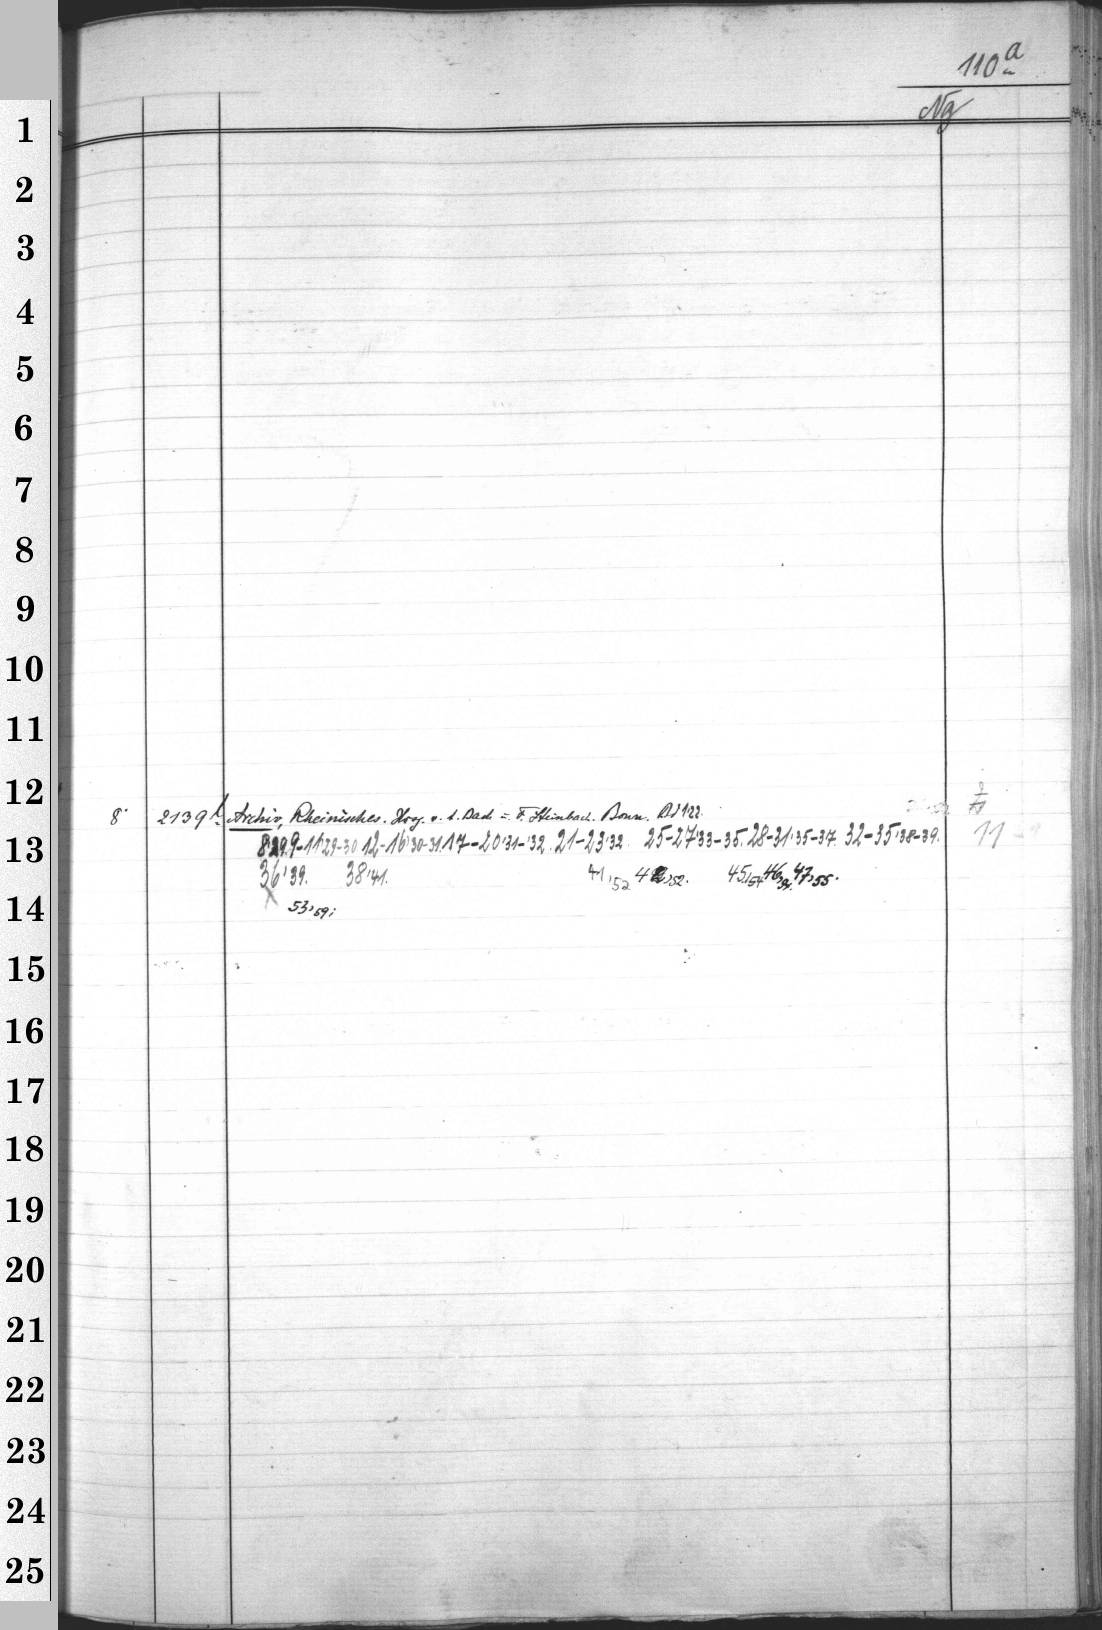 110a
Ng
1
2
3
4
5
6
7
8
9
10
11
12
8° 2139 h Archiv, Rheinisches. Hrsg. v. A. Bach = F. Steinbach. Bonn.
13
8'29. 9-11'29-30 12-16'30-31. 17-20'31-'32. 21-23'32. 25-27'33-35. 28-31'35-37. 32-35'38-39. 11
36'39. 38'41. 41,52 42,52. 45,54 46,54. 47,55.
14
53,59;
15
16
17
18
19
20
21
22
23
24
25